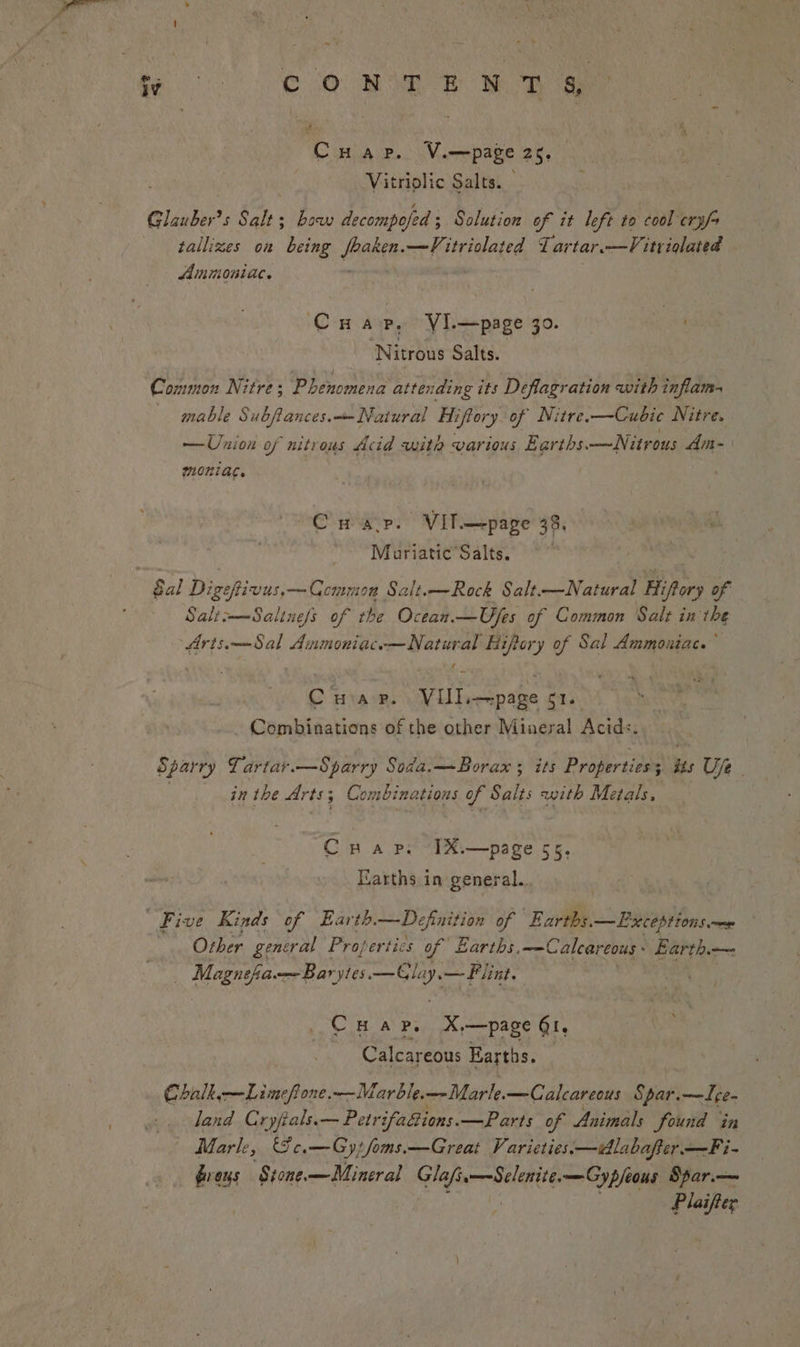 iv CONTENTS,
CHAP. V.—page 25.
Vitriolic Salts.
Glauber's Salt; how decompoſed; Solution of it left to cool cryſ-
tallizes on being ſhaken.—Vitriolated Tartar.—Vitriolated
Ammoniac.
CHAP. VI.—page 30.
Nitrous Salts.
Common Nitre; Phenomena attending its Deflagration with inflam-
mable Subſtances.—Natural Hiſtory of Nitre.—Cubic Nitre.
—Union of nitrous Acid with various Earths.—Nitrous Am-
moniac.
CHAP. VII.—page 38.
Muriatic Salts.
Sal Digeſtivus.—Common Salt.—Rock Salt.—Natural Hiſtory of
Salt.—Saltneſs of the Ocean.—Uſes of Common Salt in the
Arts.—Sal Ammoniac.—Natural Hiſtory of Sal Ammoniac.
CHAP. VIII.—page 51.
Combinations of the other Mineral Acids.
Sparry Tartar.—Sparry Soda.—Borax; its Properties; its Uſe
in the Arts; Combinations of Salts with Metals.
CHAP. IX.—page 55.
Earths in general.
Five Kinds of Earth.—Definition of Earths.—Exceptions.—
Other general Properties of Earths.—Calcareous Earth.—
Magneſia.—Barytes.—Clay.—Flint.
CHAP. X.—page 61.
Calcareous Earths.
Chalk.—Limeſtone.—Marble.—Marle.—Calcareous Spar.—Ice-
land Cryſtals.—Petrifactions.—Parts of Animals found in
Marle, &c.—Gypſoms.—Great Varieties.—Alabaſter.—Fi-
brous Stone.—Mineral Glaſs.—Selenite.—Gypſeous Spar.—
Plaiſter